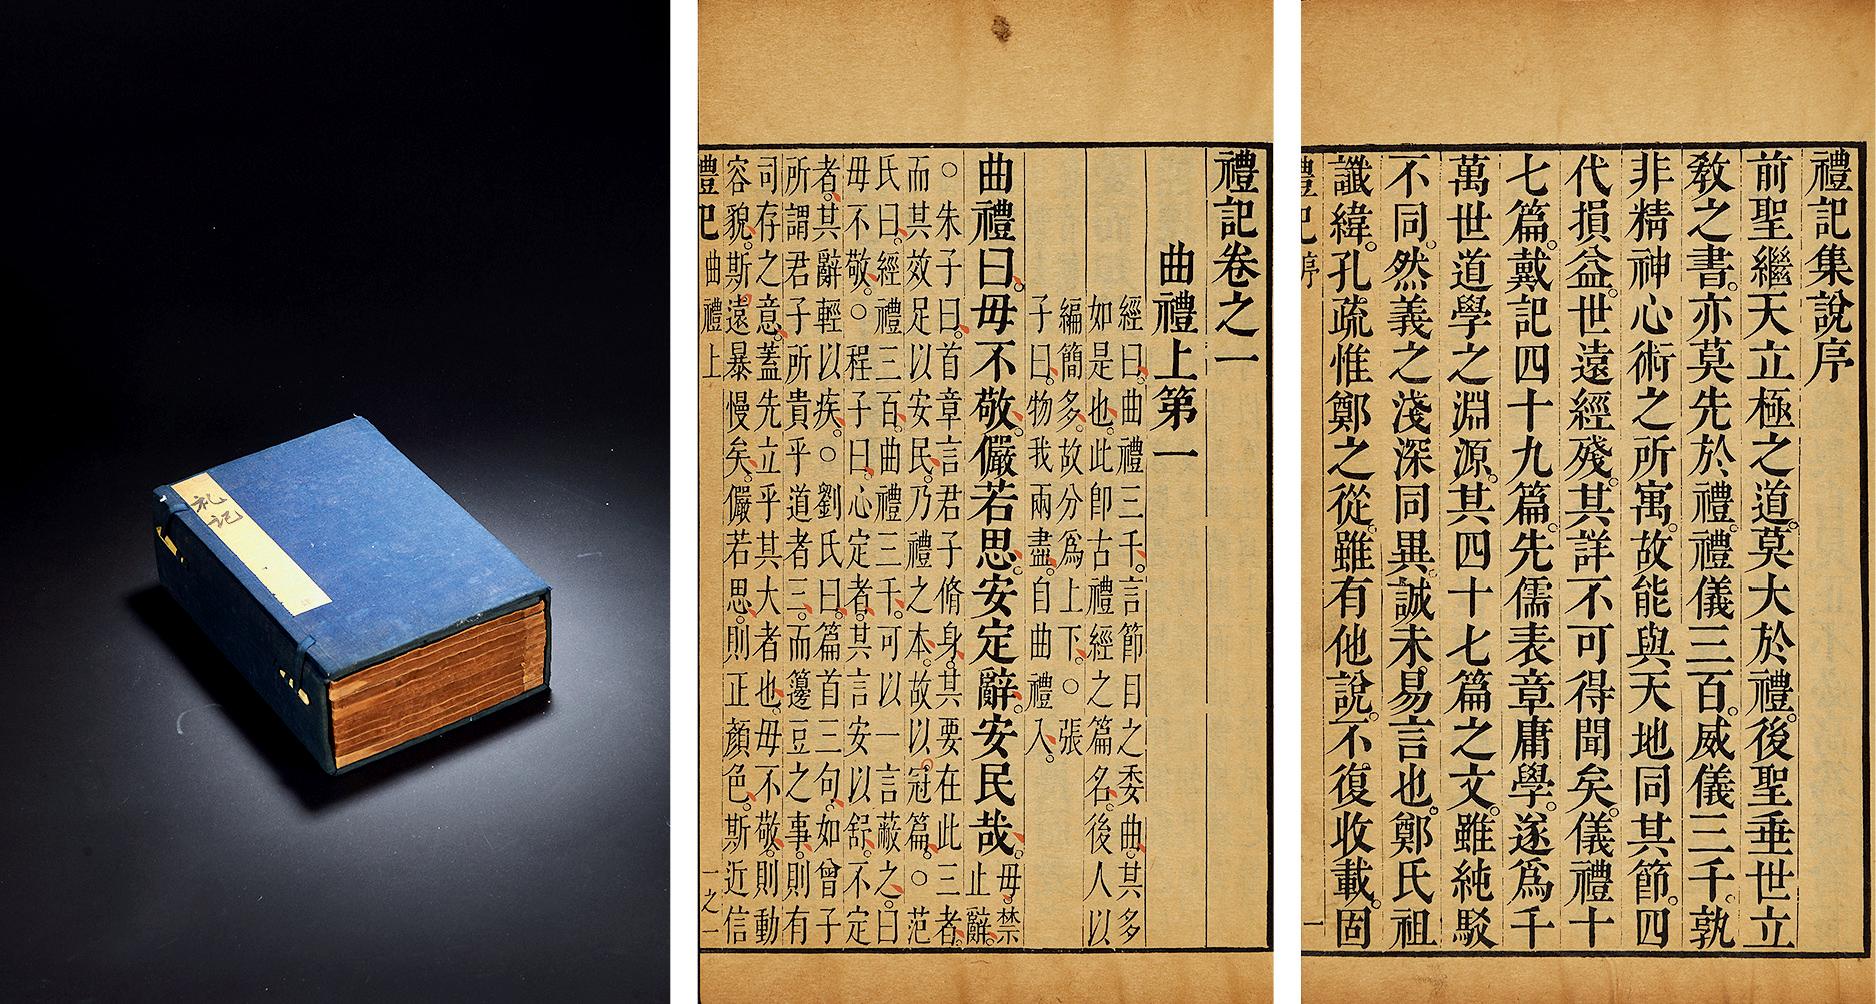 禮記集說序
前聖繼天立極之道。莫大於禮。後聖垂世立
敎之書。亦莫先於禮。禮儀三百。威儀三千。孰
非精神心術之所寓。故能與天地同其節。四
代損益。世遠經殘。其詳不可得聞矣。儀禮十
七篇。戴記四十九篇。先儒表章庸學。遂爲千
萬世道學之淵源。其四十七篇之文。雖純駁
不同。然義之淺深同異。誠未易言也。鄭氏祖
讖緯。孔疏惟鄭之從。雖有他說。不復收載。固
禮記 序 一
禮記卷之一
曲禮上第一
經曰。曲禮三千。言節目之委曲。其多
如是也。此卽古禮經之篇名。後人以
編簡多。故分爲上下。○張
子曰。物我兩盡。自曲禮入。
曲禮曰。毋不敬。儼若思。安定辭。安民哉。毋。禁
止辭。
○朱子曰。首章言君子脩身。其要在此三者。
而其效足以安民。乃禮之本。故以冠篇。○范
氏曰。經禮三百。曲禮三千。可以一言蔽之。曰
毋不敬。○程子曰。心定者。其言安以舒。不定
者。其辭輕以疾。○劉氏曰。篇首三句。如曾子
所謂君子所貴乎道者三。而籩豆之事。則有
司存之意。蓋先立乎其大者也。毋不敬。則動
容貌。斯遠暴慢矣。儼若思。則正顏色。斯近信
禮記 曲禮上 一之一
礼记